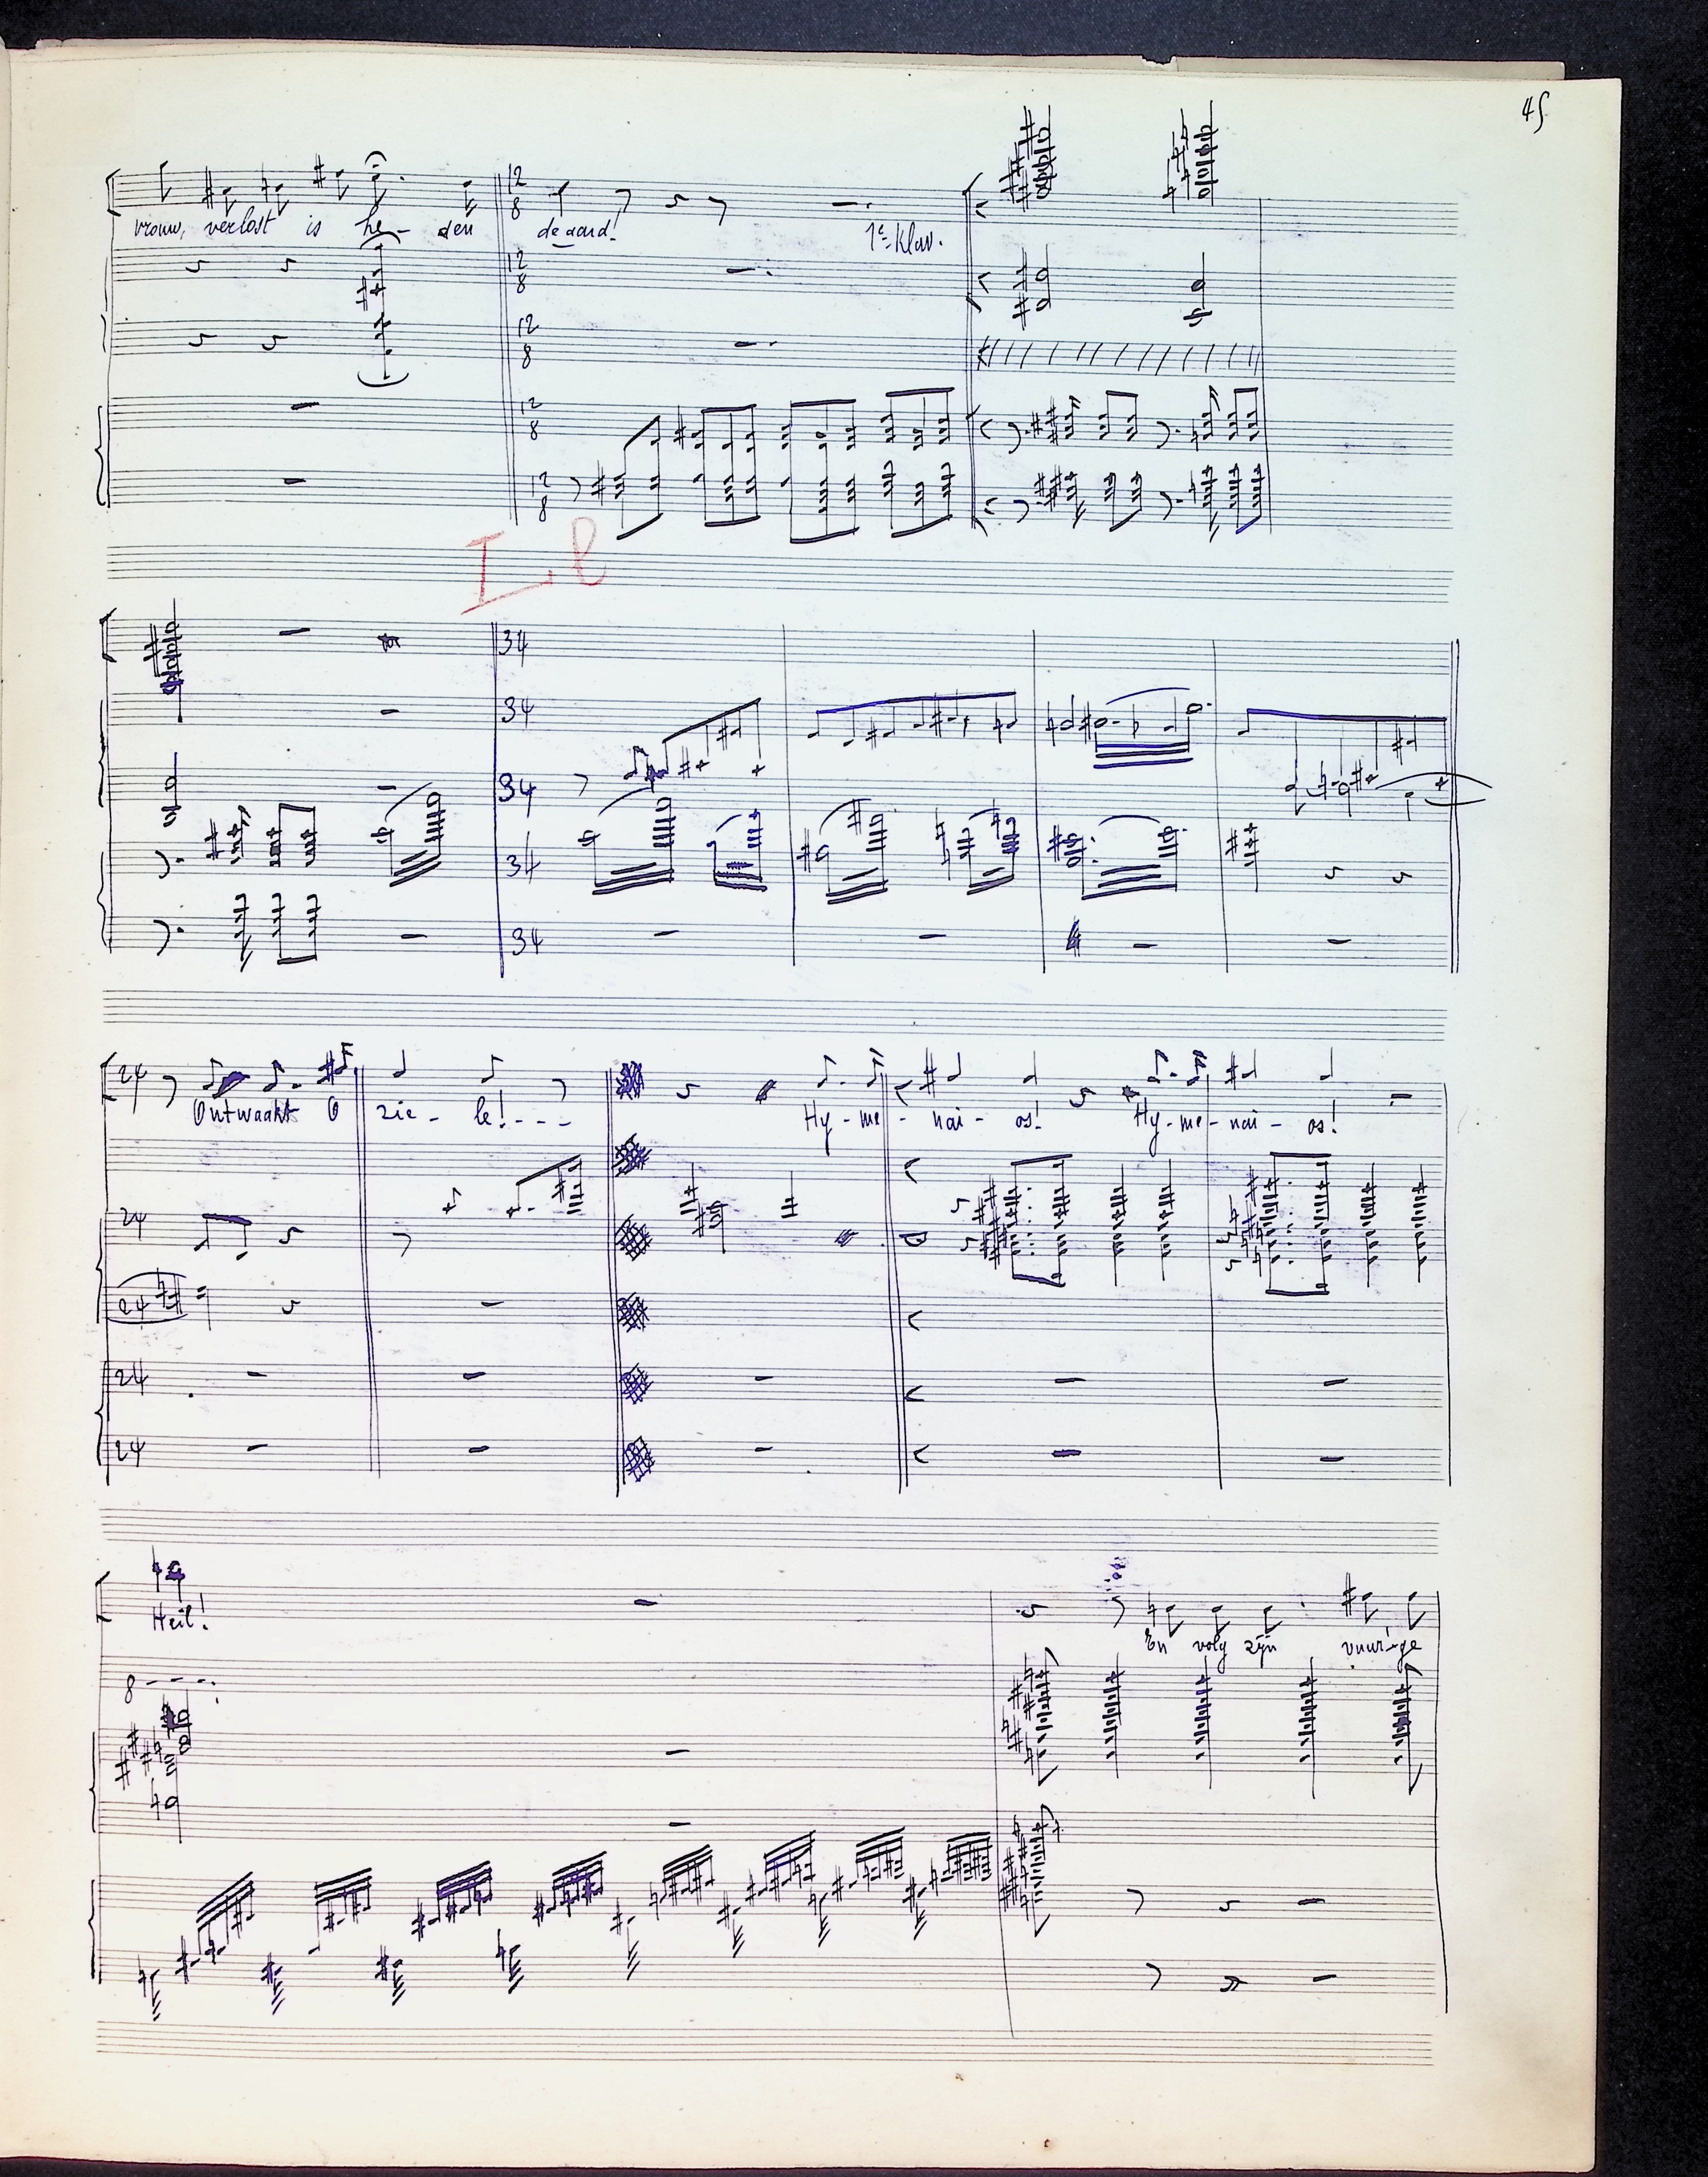 45
12 8
vrouw, verlost is he- den de aard! 1e Klav.
12 8
12 8
12 8
12 8
I
34
34
34
34
34
24
Ontwaakt O zie - le! - - - Hy - me - nai - os! Hy - me - nai - os!
24
24
24
24
Heil! En volg zijn vuur-ge
8